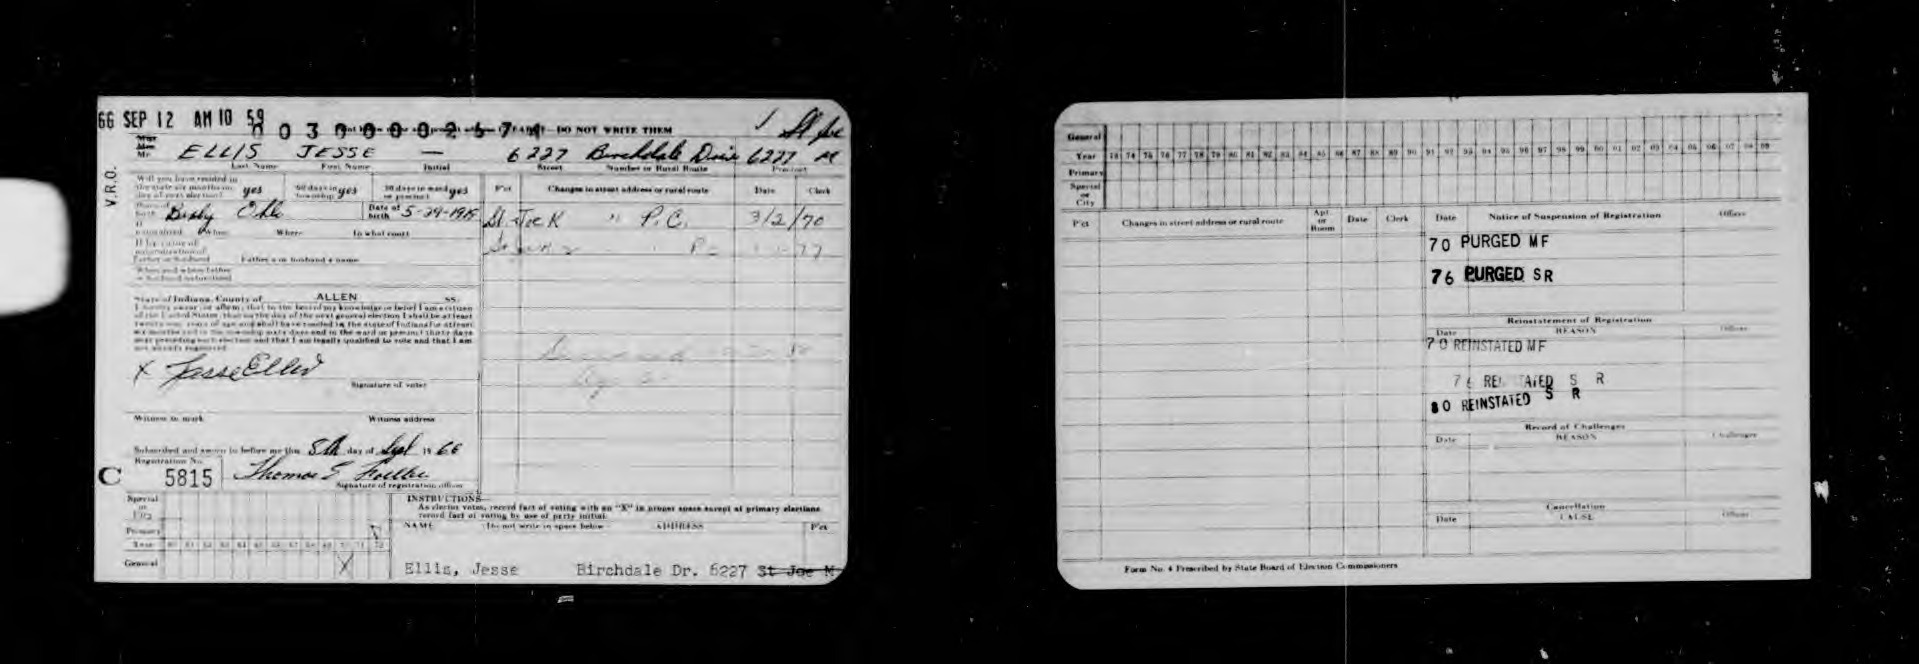 66 SEP 12 AM 10 59
DO NOT WRITE THEM
1 St Joe
Mr. ELLIS JESSE — 6227 Birchdale Drive 6227 M
Last Name First Name Initial Street Number or Rural Route Precinct
V.R.O.
Will you have resided in
the state six months on
day of next election? yes 60 days in township yes 30 days in ward or precinct yes
P'ct Changes in street address or rural route Date Clerk
birth Ohio Date of birth 5-29-1915
St. Joe K " P.C. 3/2/70
When Where In what court
77
Father's or husband's name
State of Indiana, County of ALLEN ss.
I hereby swear (or affirm) that to the best of my knowledge or belief I am a citizen
of the United States, that on the day of the next general election I shall be at least
twenty-one years of age and shall have resided in the state of Indiana for at least
six months and in the township sixty days and in the ward or precinct thirty days
next preceding such election and that I am legally qualified to vote and that I am
not already registered.
X Jesse Ellis
Signature of voter
Witness to mark Witness address
Subscribed and sworn to before me this 8th day of Sept 19 66
Registration No.
C 5815 Thomas E
Signature of registration officer
Special
or
City
Primary
Year
General X
INSTRUCTIONS—
As elector votes, record fact of voting with an "X" in proper space except at primary elections
record fact of voting by use of party initial.
NAME (Do not write in space below) ADDRESS P'ct
Ellis, Jesse Birchdale Dr. 6227 St Joe M
General
Year 73 74 75 76 77 78 79 80 81 82 83 84 85 86 87 88 89 90 91 92 93 94 95 96 97 98 99 00 01 02 03 04 05 06 07 08 09
Primary
Special
or
City
P'ct Changes in street address or rural route Apt or Room Date Clerk
Date Notice of Suspension of Registration Officer
70 PURGED MF
76 PURGED SR
Reinstatement of Registration
Date REASON Officer
70 REINSTATED MF
76 REINSTATED S R
80 REINSTATED S R
Record of Challenges
Date REASON Challenger
Cancellation
Date CAUSE Officer
Form No. 4 Prescribed by State Board of Election Commissioners